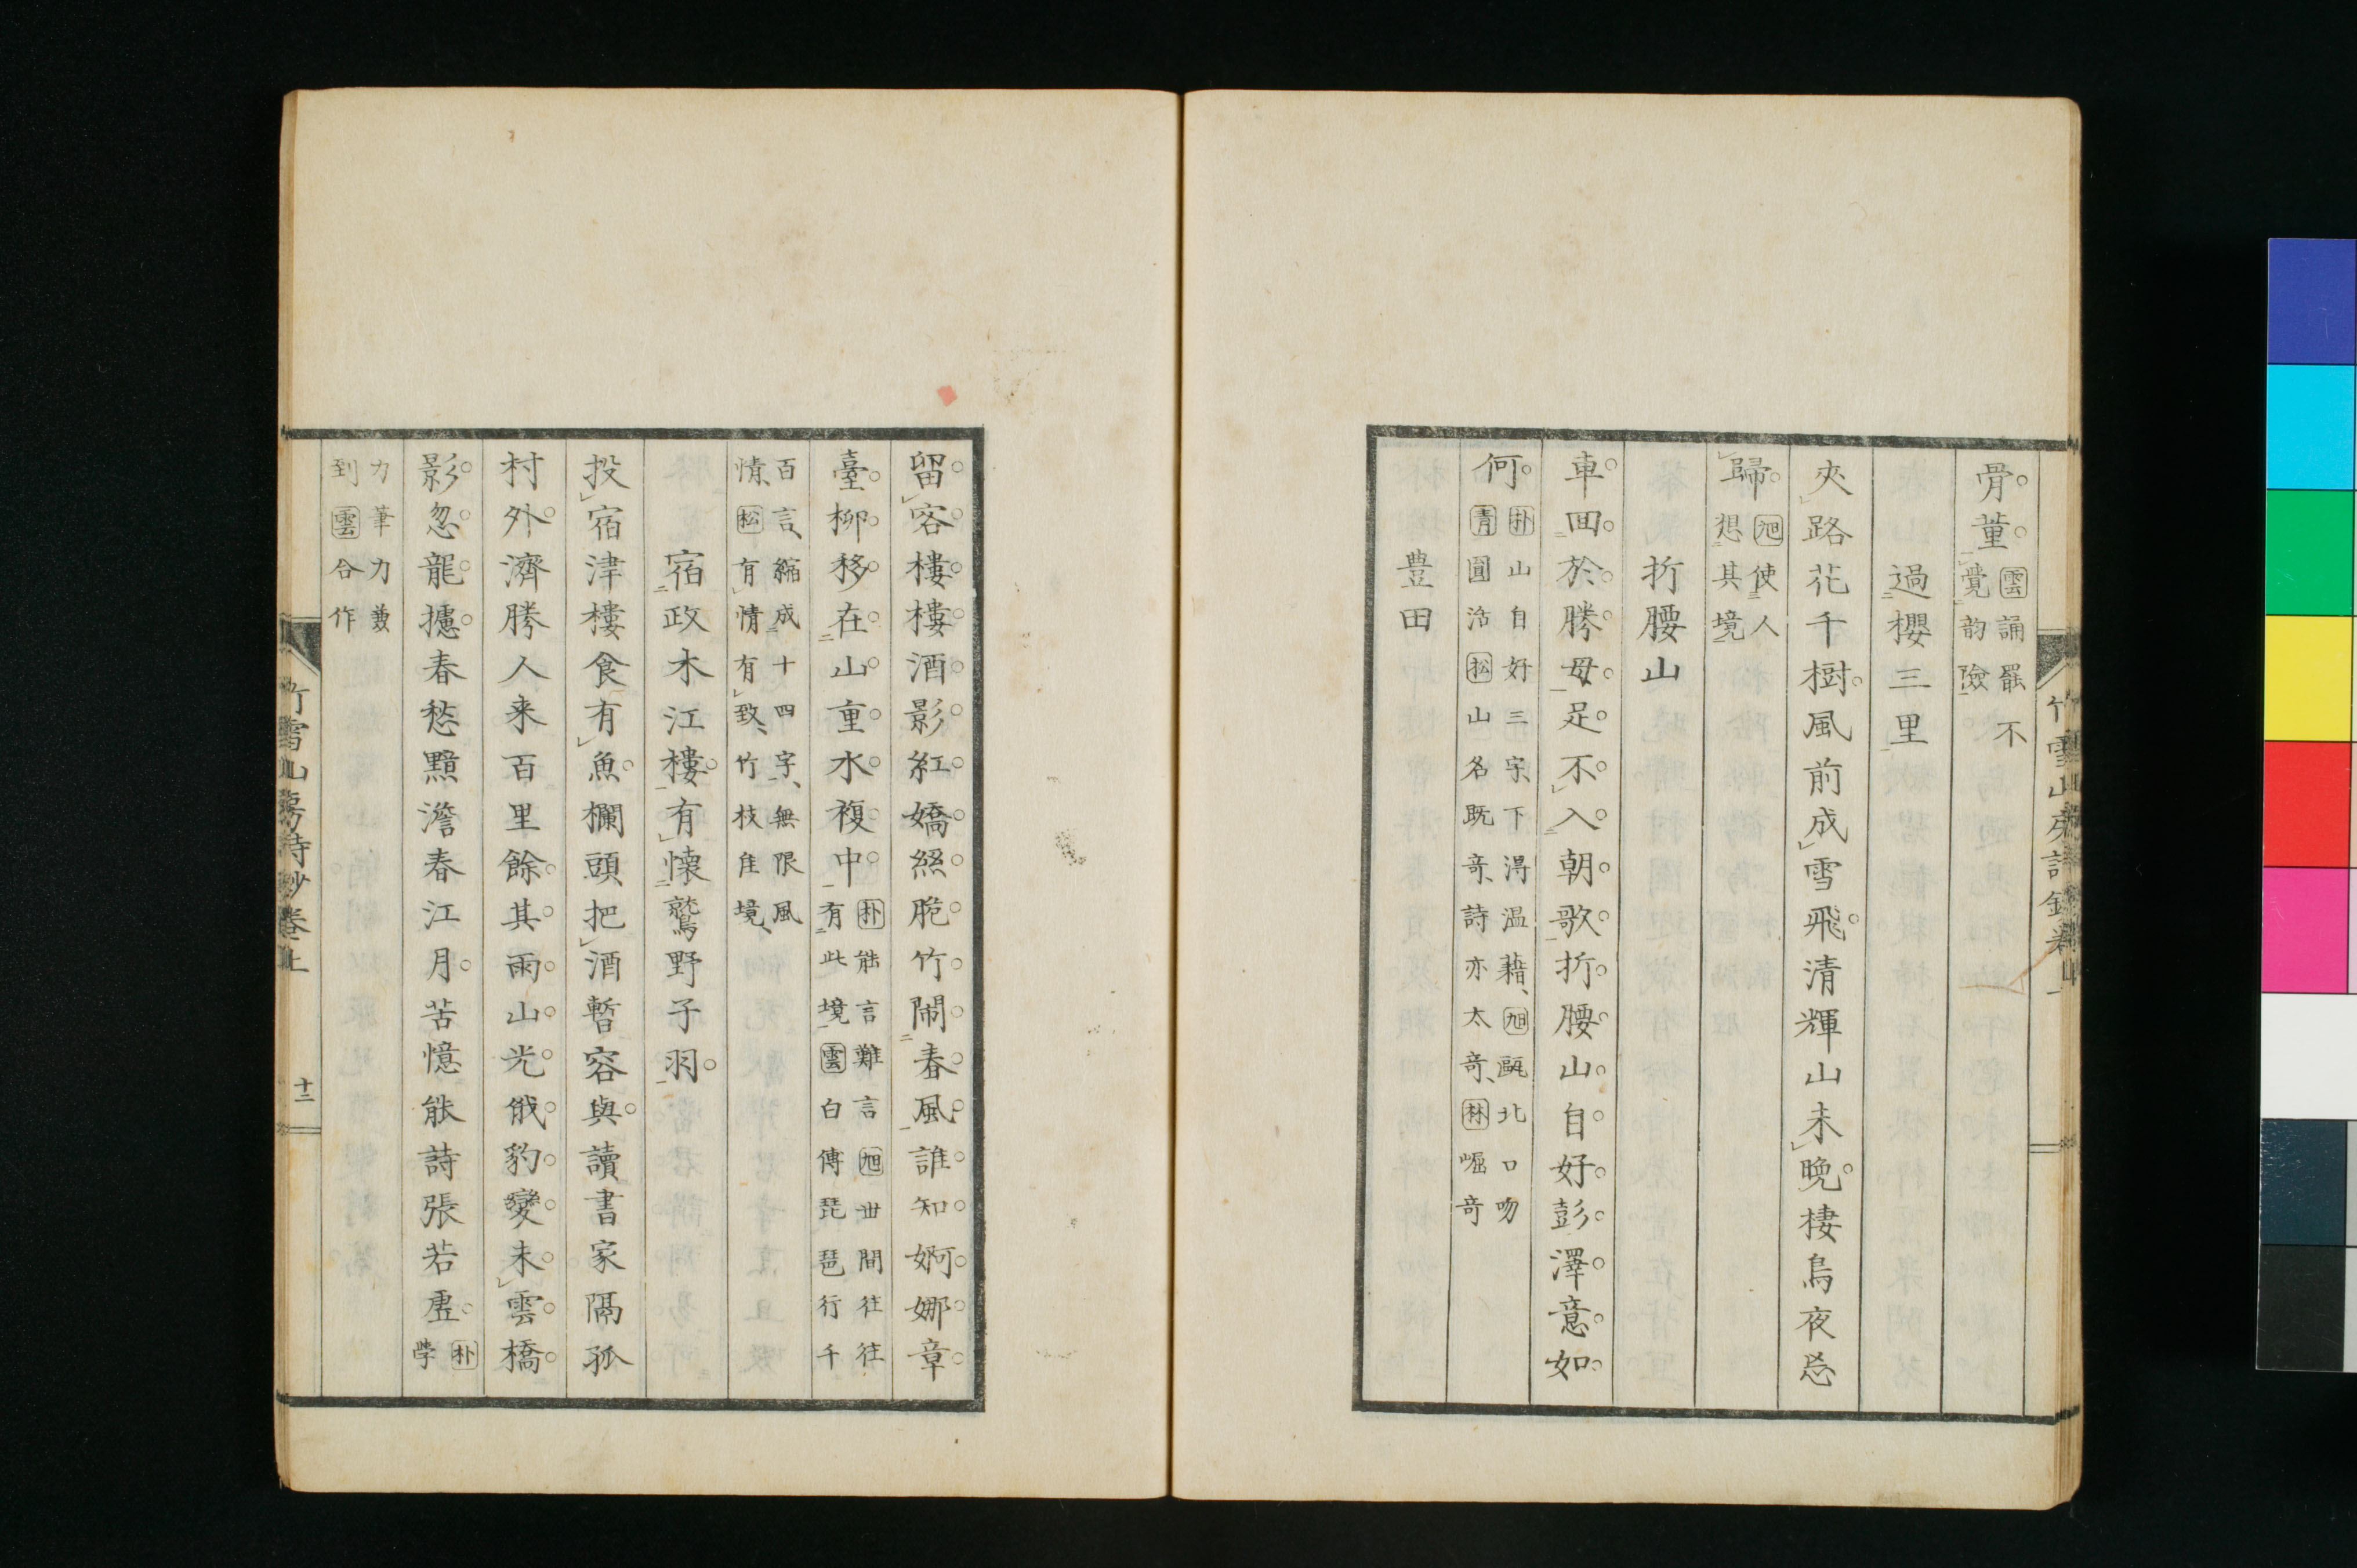 骨董雲誦罷不
覺韵險
過櫻三里
夾路花千樹風前成雪飛清輝山未晩棲烏夜忘
歸旭使人
想其境
折腰山
車回於勝母足不入朝歌折腰山自好彭澤意如
何朴山自好三字、下得溫藉、旭甌北口吻
青圓活松山名既奇、詩亦太奇、林崛奇
豊田
留客樓樓酒影紅嬌絲脆竹鬧春風誰知婀娜章
臺柳移在山重水複中朴能言難言旭世間往往
有此境雲白傳琵琶行千
百言、縮成十四字、無限風
情、松有情有致、竹枝佳境、
宿政木江樓有懷鷲野子羽
投宿津樓食有魚欄頭把酒暫容與讀書家隔孤
村外濟勝人来百里餘其雨山光俄豹變未雲橋
影忽龍攄春愁黯澹春江月苦憶能詩張若虛朴
学
力筆力兼
到雲合作
竹雪山房詩鈔卷上
十二